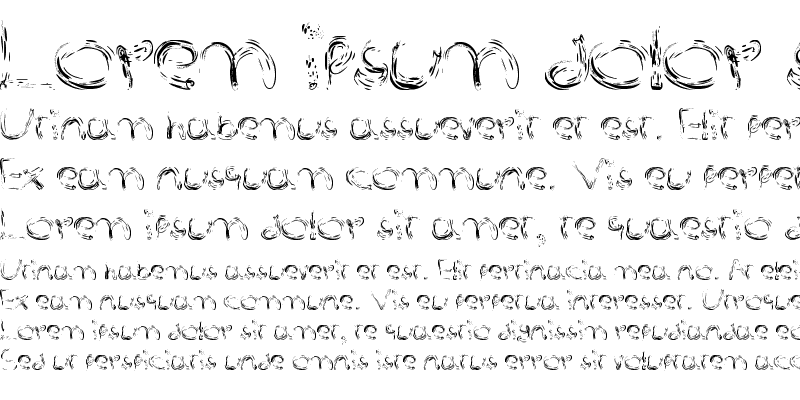 Lorem ipsum dolor s
Utinam habemus assueverit et est. Elit per
Ex eam nusquam commune. Vis eu perfe
Lorem ipsum dolor sit amet, te quaestio d
Utinam habemus assueverit et est. Elit pertinacia mea no. At elei
Ex eam nusquam commune. Vis eu perpetua interesset. Utroque
Lorem ipsum dolor sit amet, te quaestio dignissim repudiandae eo
Sed ut perspiciatis unde omnis iste natus error sit voluptatem acc